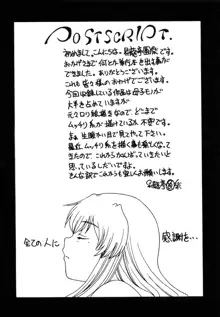 POSTSCRIPT.
初めまして、こんにちは。呂龍亭園祭です。
おかげさまで何とか単行本を出す事が
できました。ありがとうございます。
これも皆々様のおかげでございます。
今回収録している作品は母モノが
大半を占めていますが
元々ロリ絵描きなので、どこまで
ムッチリ系が描けているか不安です。
まぁ生暖かい目で見てやって下さい。
最近ムッチリ系を描く事も楽しくなって
きたので、これからもがんばっていきたいと
思っているしだいですよ。
そんな訳でこれからも宜しくお願いします。
全ての人に
感謝を…